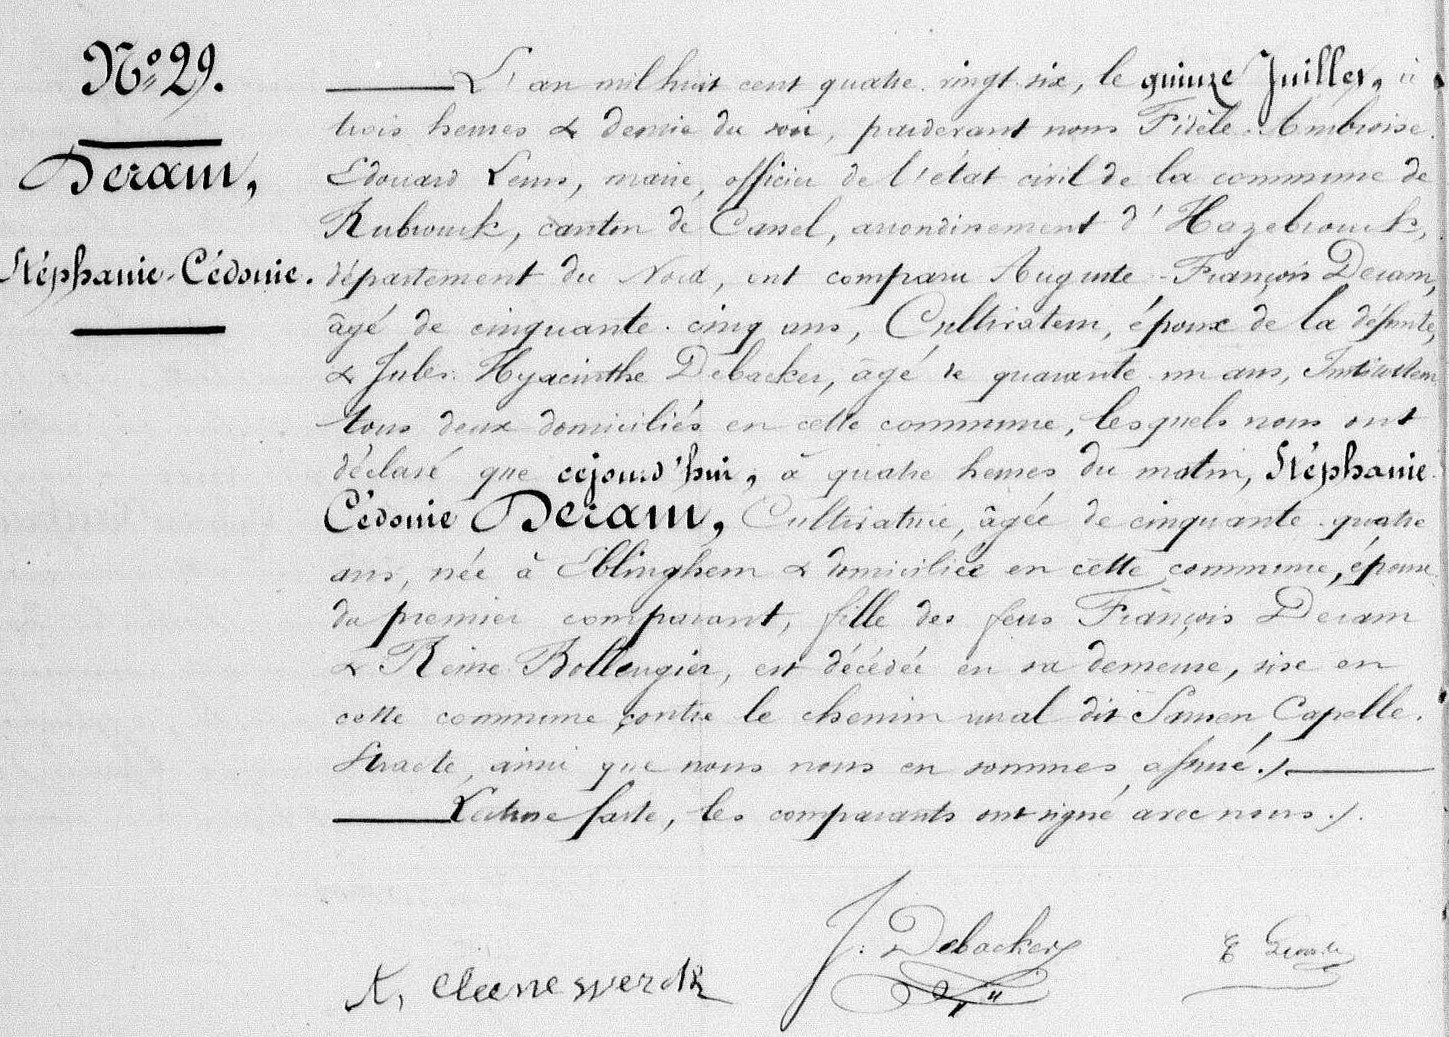 N° 29.
Deram,
Stéphanie-Cédonie.
L'an mil huit cent quatre-vingt-six, le quinze Juillet, à
trois heures & demie du soir, pardevant nous Fidèle-Ambroise-
Edouard Lenis, maire, officier de l'état civil de la commune de
Rubrouck, canton de Cassel, arrondissement d'Hazebrouck,
département du Nord, ont comparu Auguste-François Deram,
âgé de cinquante-cinq ans, Cultivateur, époux de la défunte,
& Jules-Hyacinthe Debacker, âgé de quarante-un ans, Instituteur
tous deux domiciliés en cette commune, lesquels nous ont
déclaré que cejourd'hui, à quatre heures du matin, Stéphanie-
Cédonie Deram, Cultivatrice, âgée de cinquante-quatre
ans, née à Eblinghem & domiciliée en cette commune, épouse
du premier comparant, fille des feus François Deram
& Reine Bollengier, est décédée en sa demeure, sise en
cette commune contre le chemin rural dit Capelle-
Straete, ainsi que nous nous en sommes assuré./.
Lecture faite, les comparants ont signé avec nous./.
J. Debacker